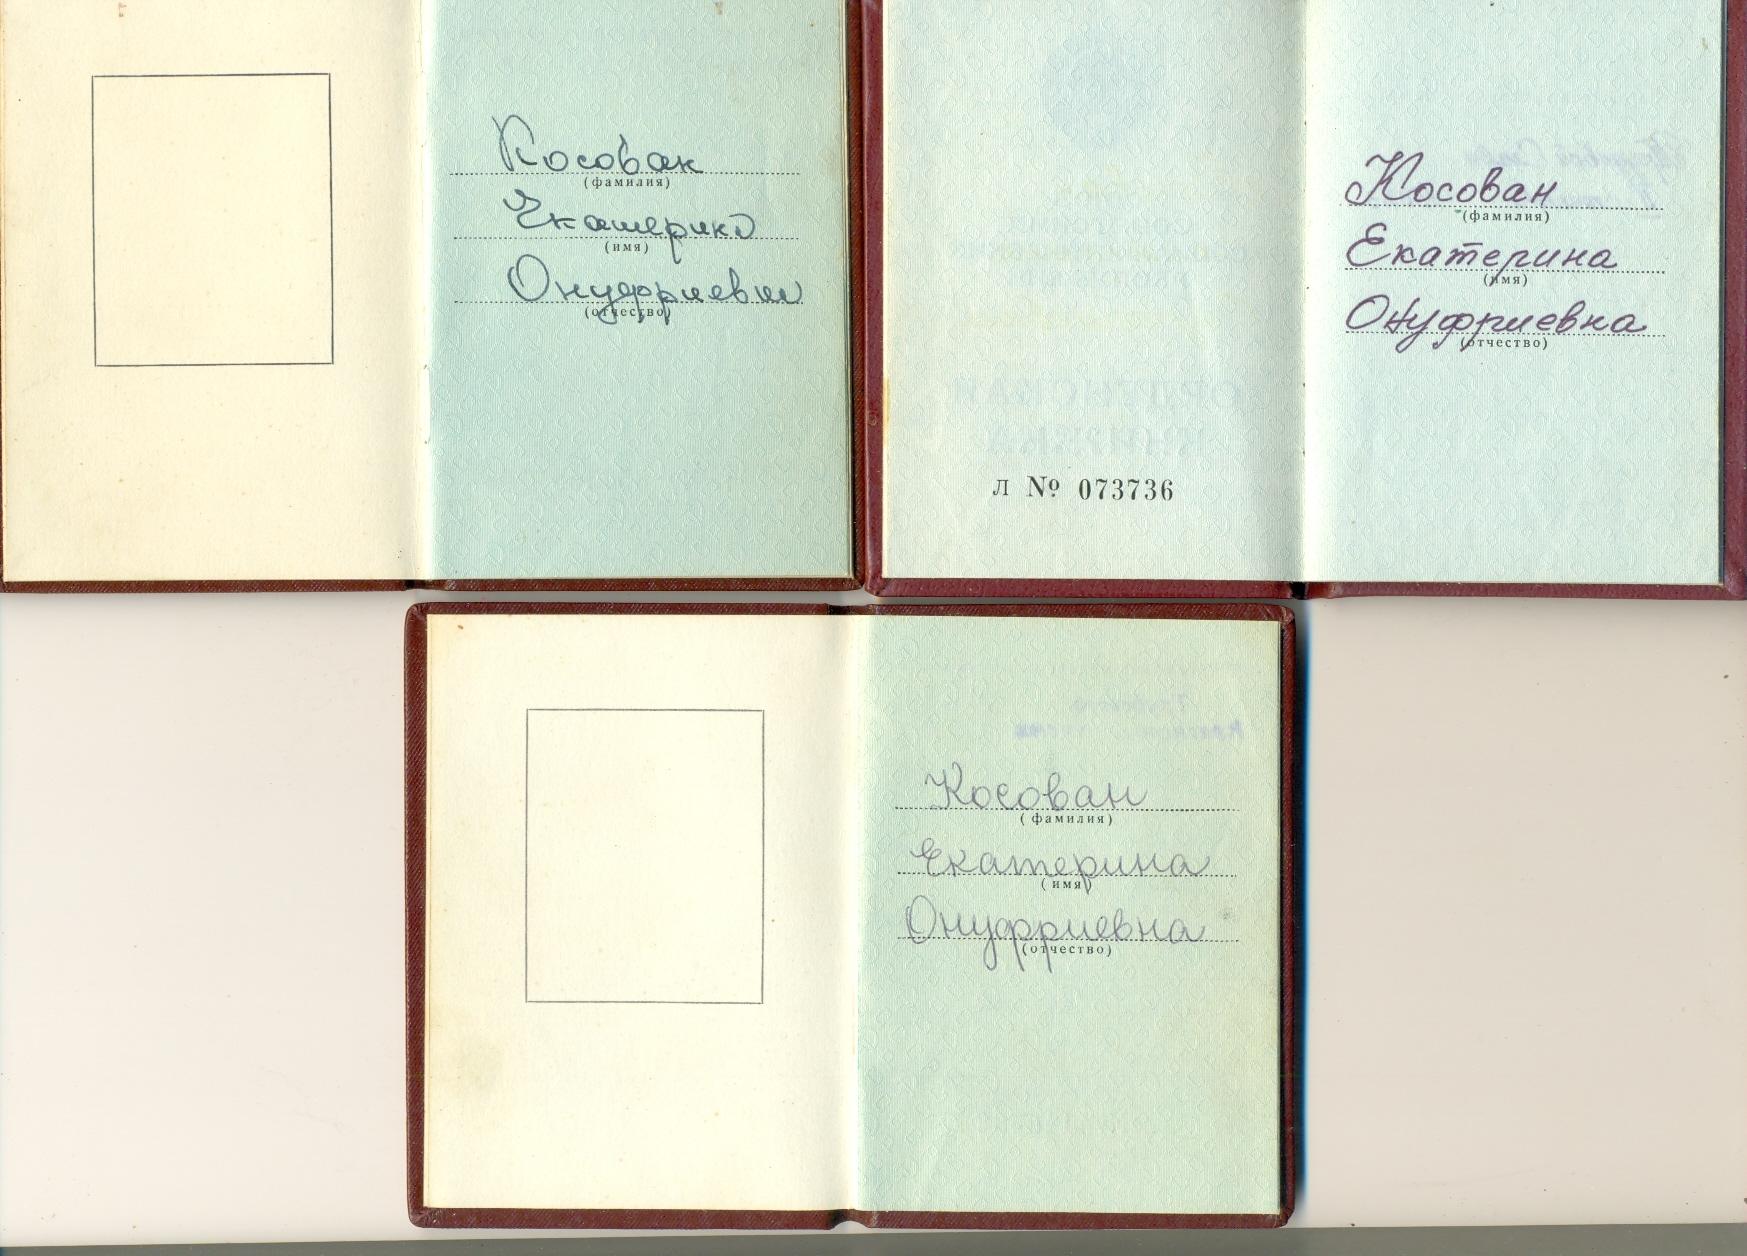 Косован
(фамилия)
Екатерина
(имя)
Онуфриевна
(отчество)
ОРДЕНСКАЯ
КНИЖКА
Л № 073736
Косован
(фамилия)
Екатерина
(имя)
Онуфриевна
(отчество)
Косован
(фамилия)
Екатерина
(имя)
Онуфриевна
(отчество)